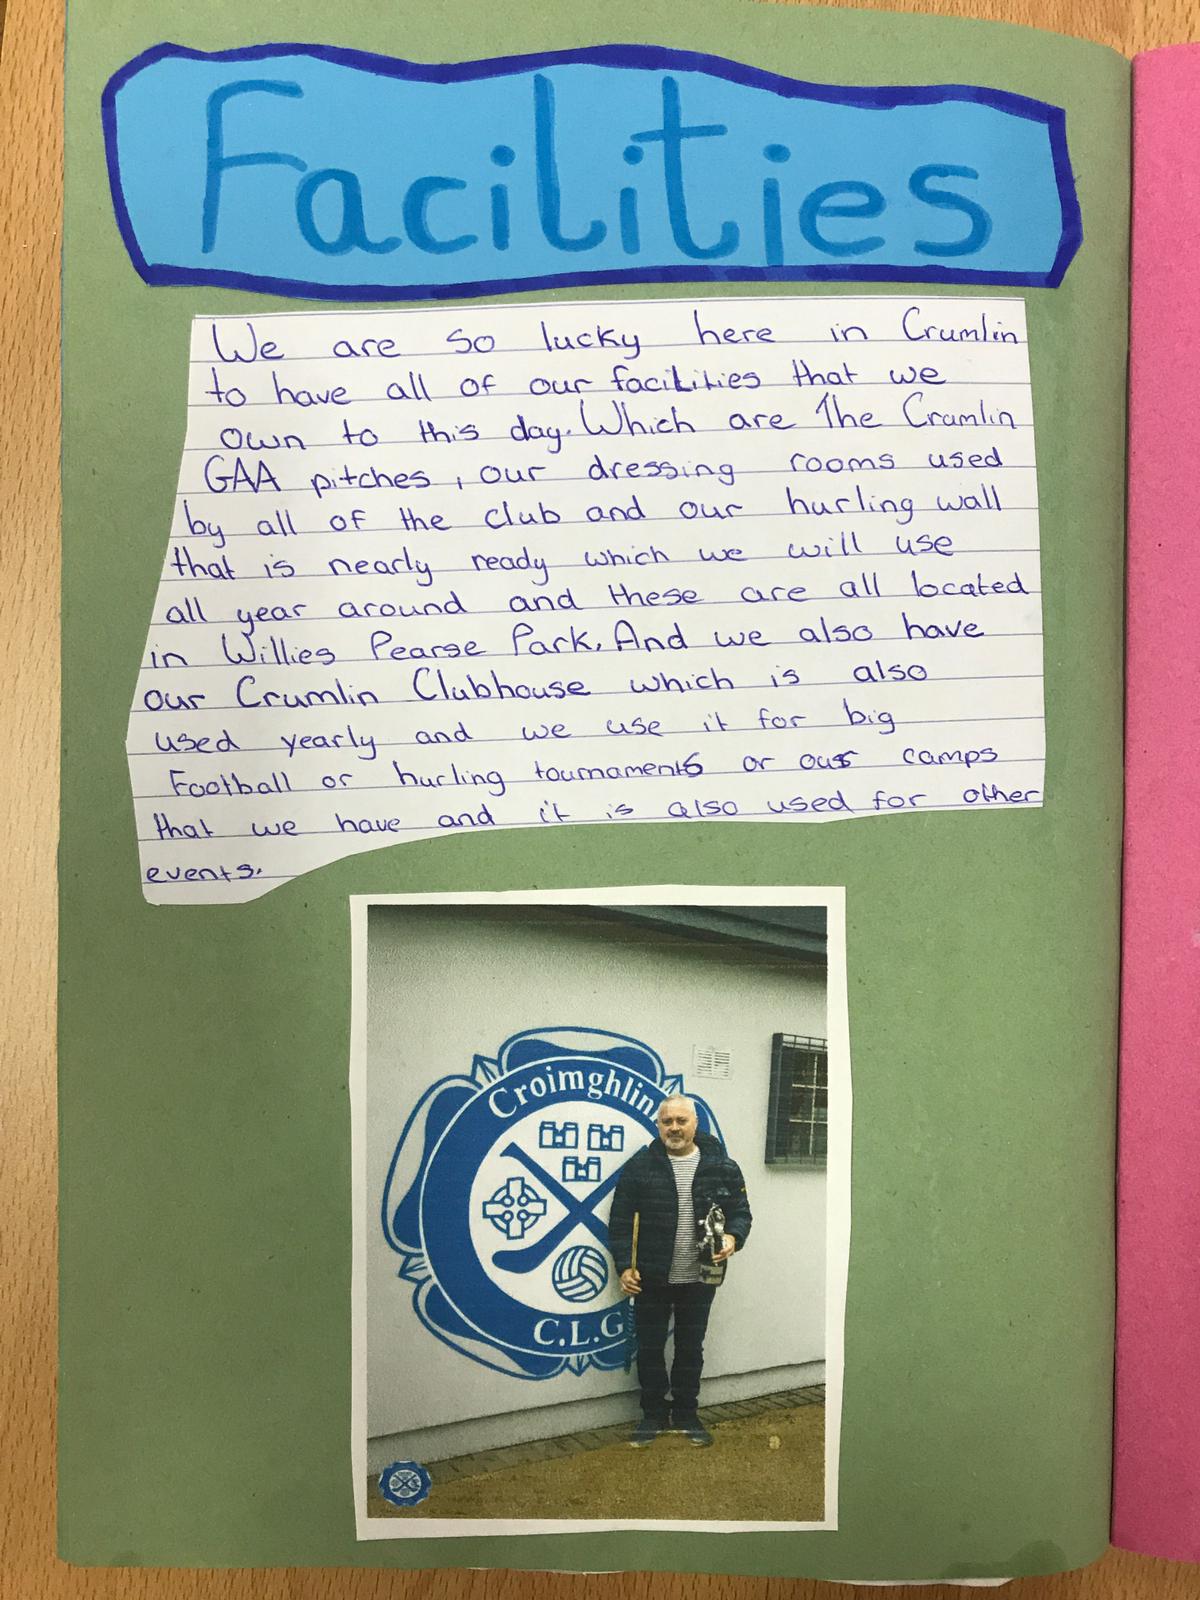 Facilities
We are so lucky here in Crumlin
to have all of our facilities that we
own to this day. Which are The Crumlin
GAA pitches, our dressing rooms used
by all of the club and our hurling wall
that is nearly ready which we will use
all year around and these are all located
in Willies Pearse Park. And we also have
our Crumlin Clubhouse which is also
used yearly and we use it for big
Football or hurling tournaments or our camps
that we have and it is also used for other
events.
Croimghlinn
C.L.G